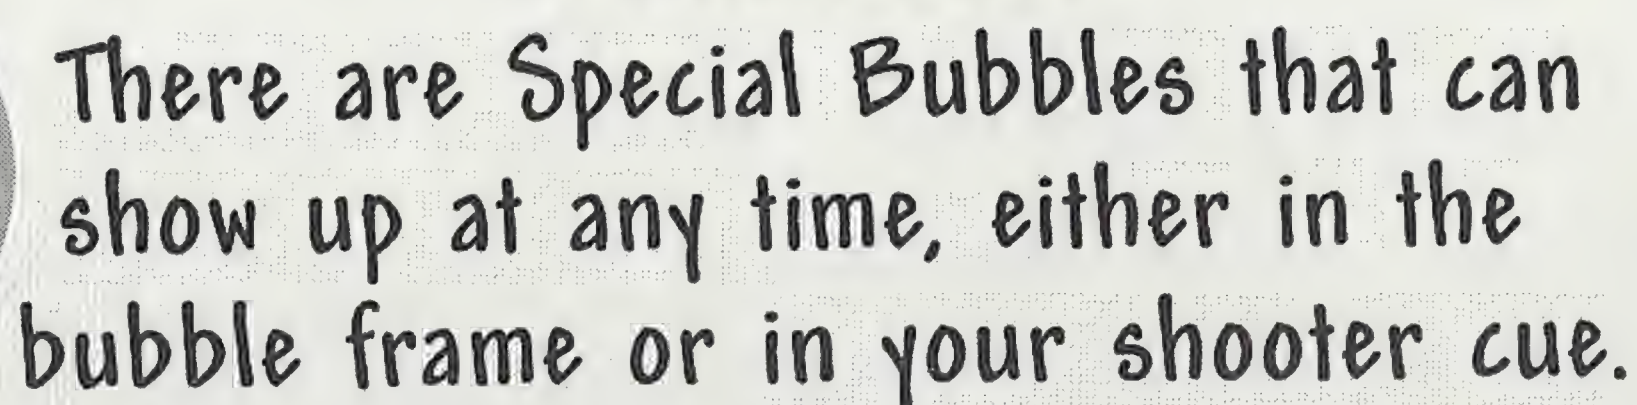 There are Special Bubbles that can
show up at any time, either in the
bubble frame or in your shooter cue.